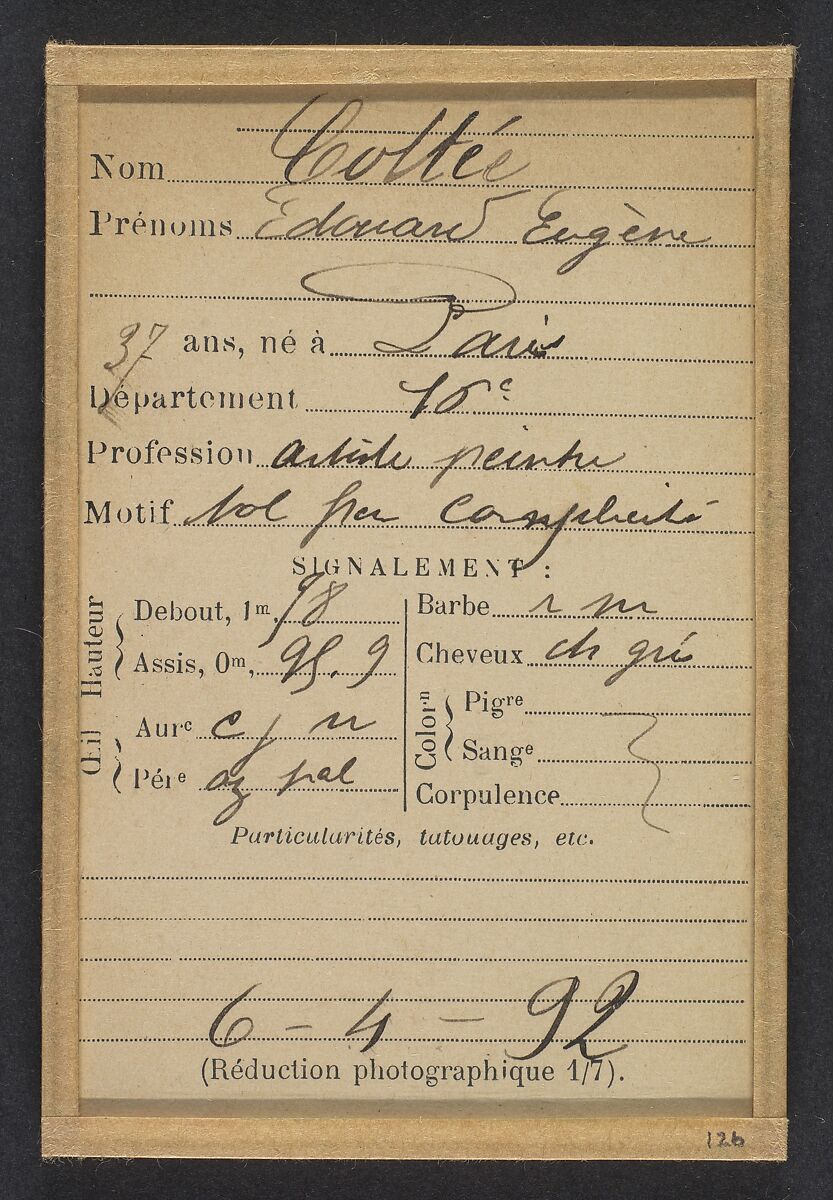 Nom Collée
Prénoms Edouard Eugène
37 ans, né à Paris
Département 10e
Profession artiste peintre
Motif Vol par complicité
SIGNALEMENT :
Hauteur
Debout, 1m, 78
Assis, 0m, 95.9
Œil
Aurc c j n
Pére az pal
Barbe r m
Cheveux ch gris
Colorn
Pigre
Sange
Corpulence
Particularités, tatouages, etc.
6 - 4 - 92
(Réduction photographique 1/7).
126